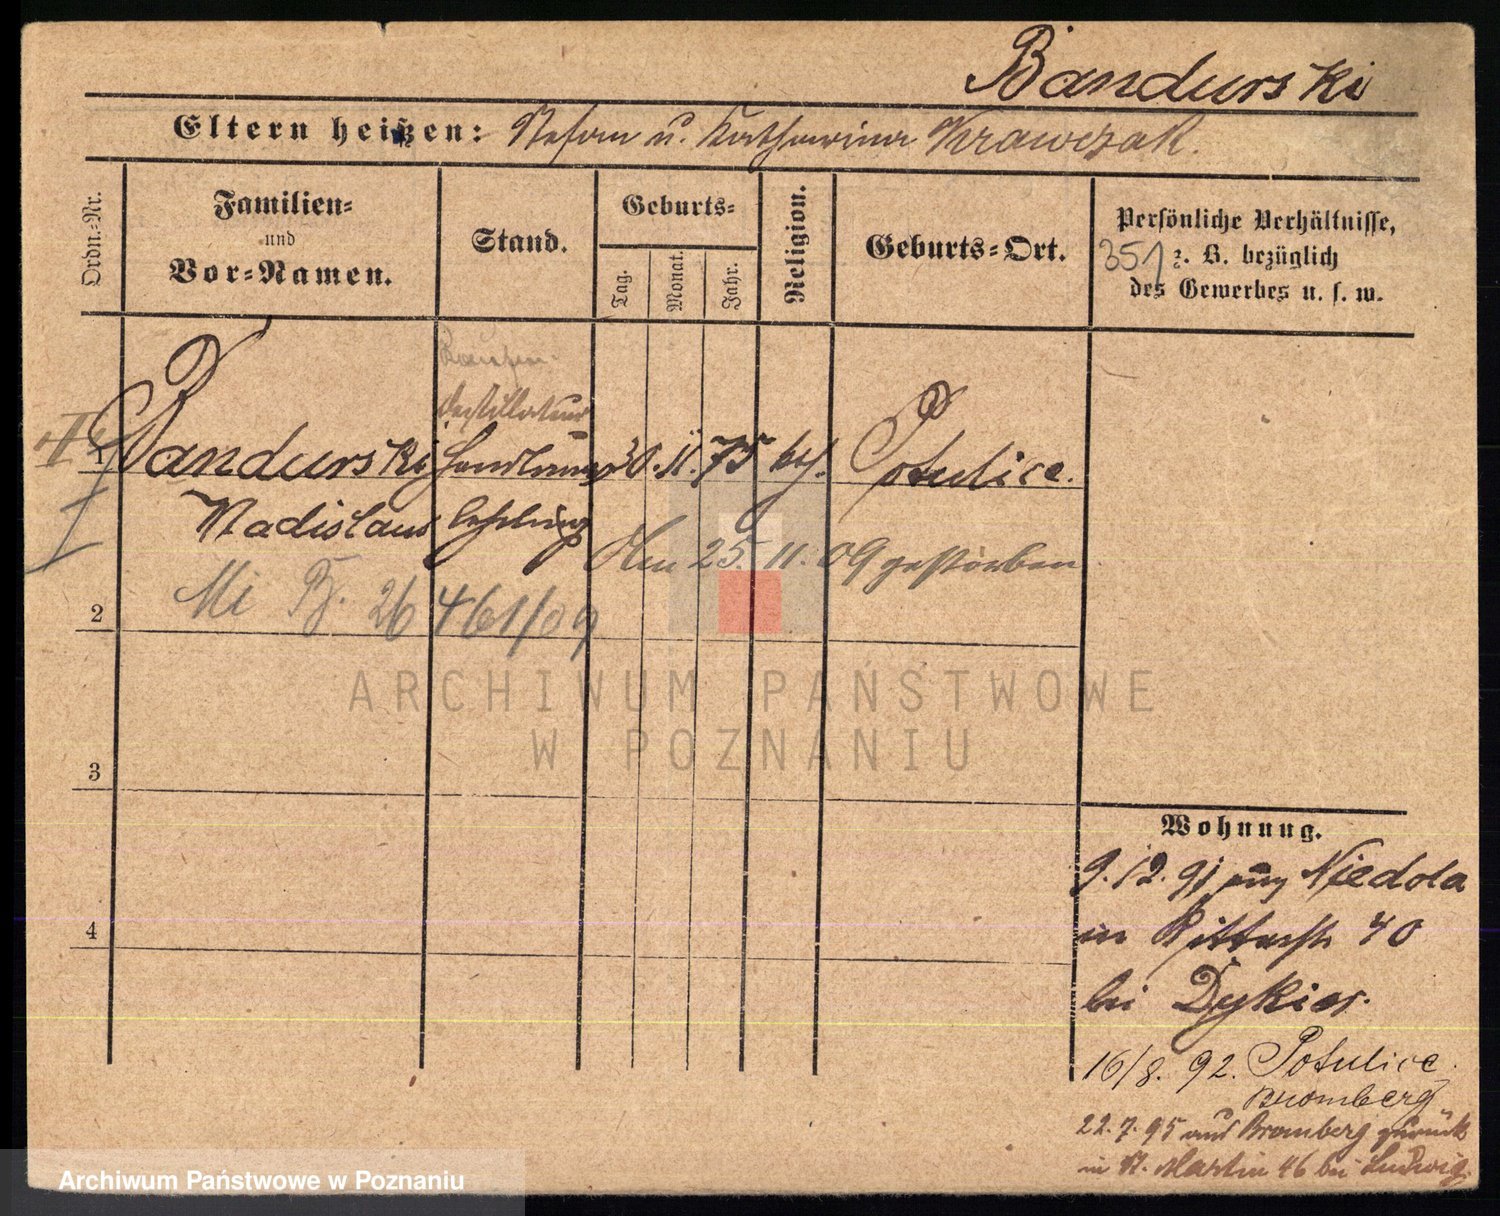 Bandurski
Eltern heißen: Stefan u. Katharina Krawczak.
Ordn.-Nr.
Familien-
und
Vor-Namen.
Stand.
Geburts-
Tag.
Monat.
Jahr.
Religion.
Geburts-Ort.
Persönliche Verhältnisse,
351 z. B. bezüglich
des Gewerbes u. s. w.
destillateur
II
1 Bandurski Handlungs 30. 11. 75 kth. Potulice.
Wladislaus lehrling
I
Den 25. 11. 09 gestorben
Mi 26461/09
2
ARCHIWUM PAŃSTWOWE
W POZNANIU
3
4
Wohnung.
9.12.91 aus Niedola
in Ritterstr 40
bei Dykier.
16/8. 92. Potulice.
Bromberg
22.7.95 aus Bromberg zurück
in St. Martin 46 bei Ludwig.
Archiwum Państwowe w Poznaniu